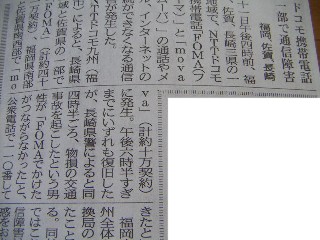 ドコモ携帯電話
部で通信障害
福岡、佐賀、長崎
十一日午後四時前、福
佐賀、長崎三県の一
地域で、NTTドコモ
携帯電話「FOMA」(フ
マ)と「mova
ムーバ」の通話やメー
ル、インターネットの
続ができなくなる通信
害が発生した。
NTTドコモ九州(福
市)によると、長崎県
域と佐賀県の一部で
FOMA」(計約四十
契約)、福岡県南部
と佐賀県西部で「mo
va」(計約十万契約)
に発生。午後六時半すぎ
までにいずれも復旧した
が、長崎県警によると同
四時半ごろ、物損の交通
事故を起こしたという男
性が「FOMAでかけた
がつながらなかった」と、
公衆電話で一一〇番して
きたと
福岡
州全体
換局の
る。同
たこと
では
信障害
感をお